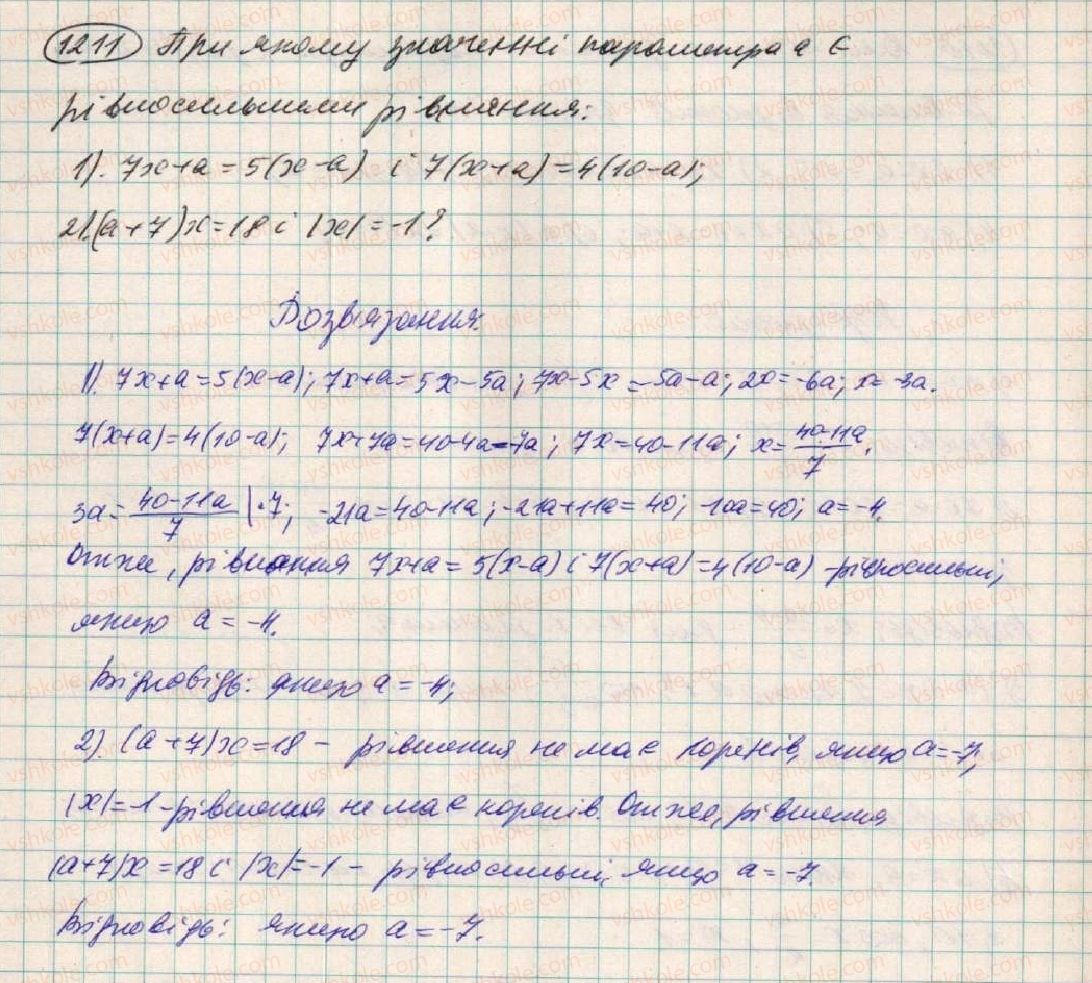 1211 При якому значенні параметра a є
рівносильними рівняння:
1). 7x+a=5(x-a) і 7(x+a)=4(10-a);
2).(a+7)x=18 і |x|=-1?
Розв'язання:
1). 7x+a=5(x-a); 7x+a=5x-5a; 7x-5x=-5a-a; 2x=-6a; x=-3a.
7(x+a)=4(10-a); 7x+7a=40-4a-7a; 7x=40-11a; x=40-11a/7.
3a=40-11a/7 |·7; -21a=40-11a; -21a+11a=40; -10a=40; a=-4.
Отже, рівняння 7x+a=5(x-a) і 7(x+a)=4(10-a) -рівносильні,
якщо a=-4.
Відповідь: якщо a=-4;
2). (a+7)x=18 - рівняння не має коренів, якщо a=-7;
|x|=-1 -рівняння не має коренів. Отже, рівняння
(a+7)x=18 і |x|=-1 - рівносильні, якщо a=-7.
Відповідь: якщо a=-7.